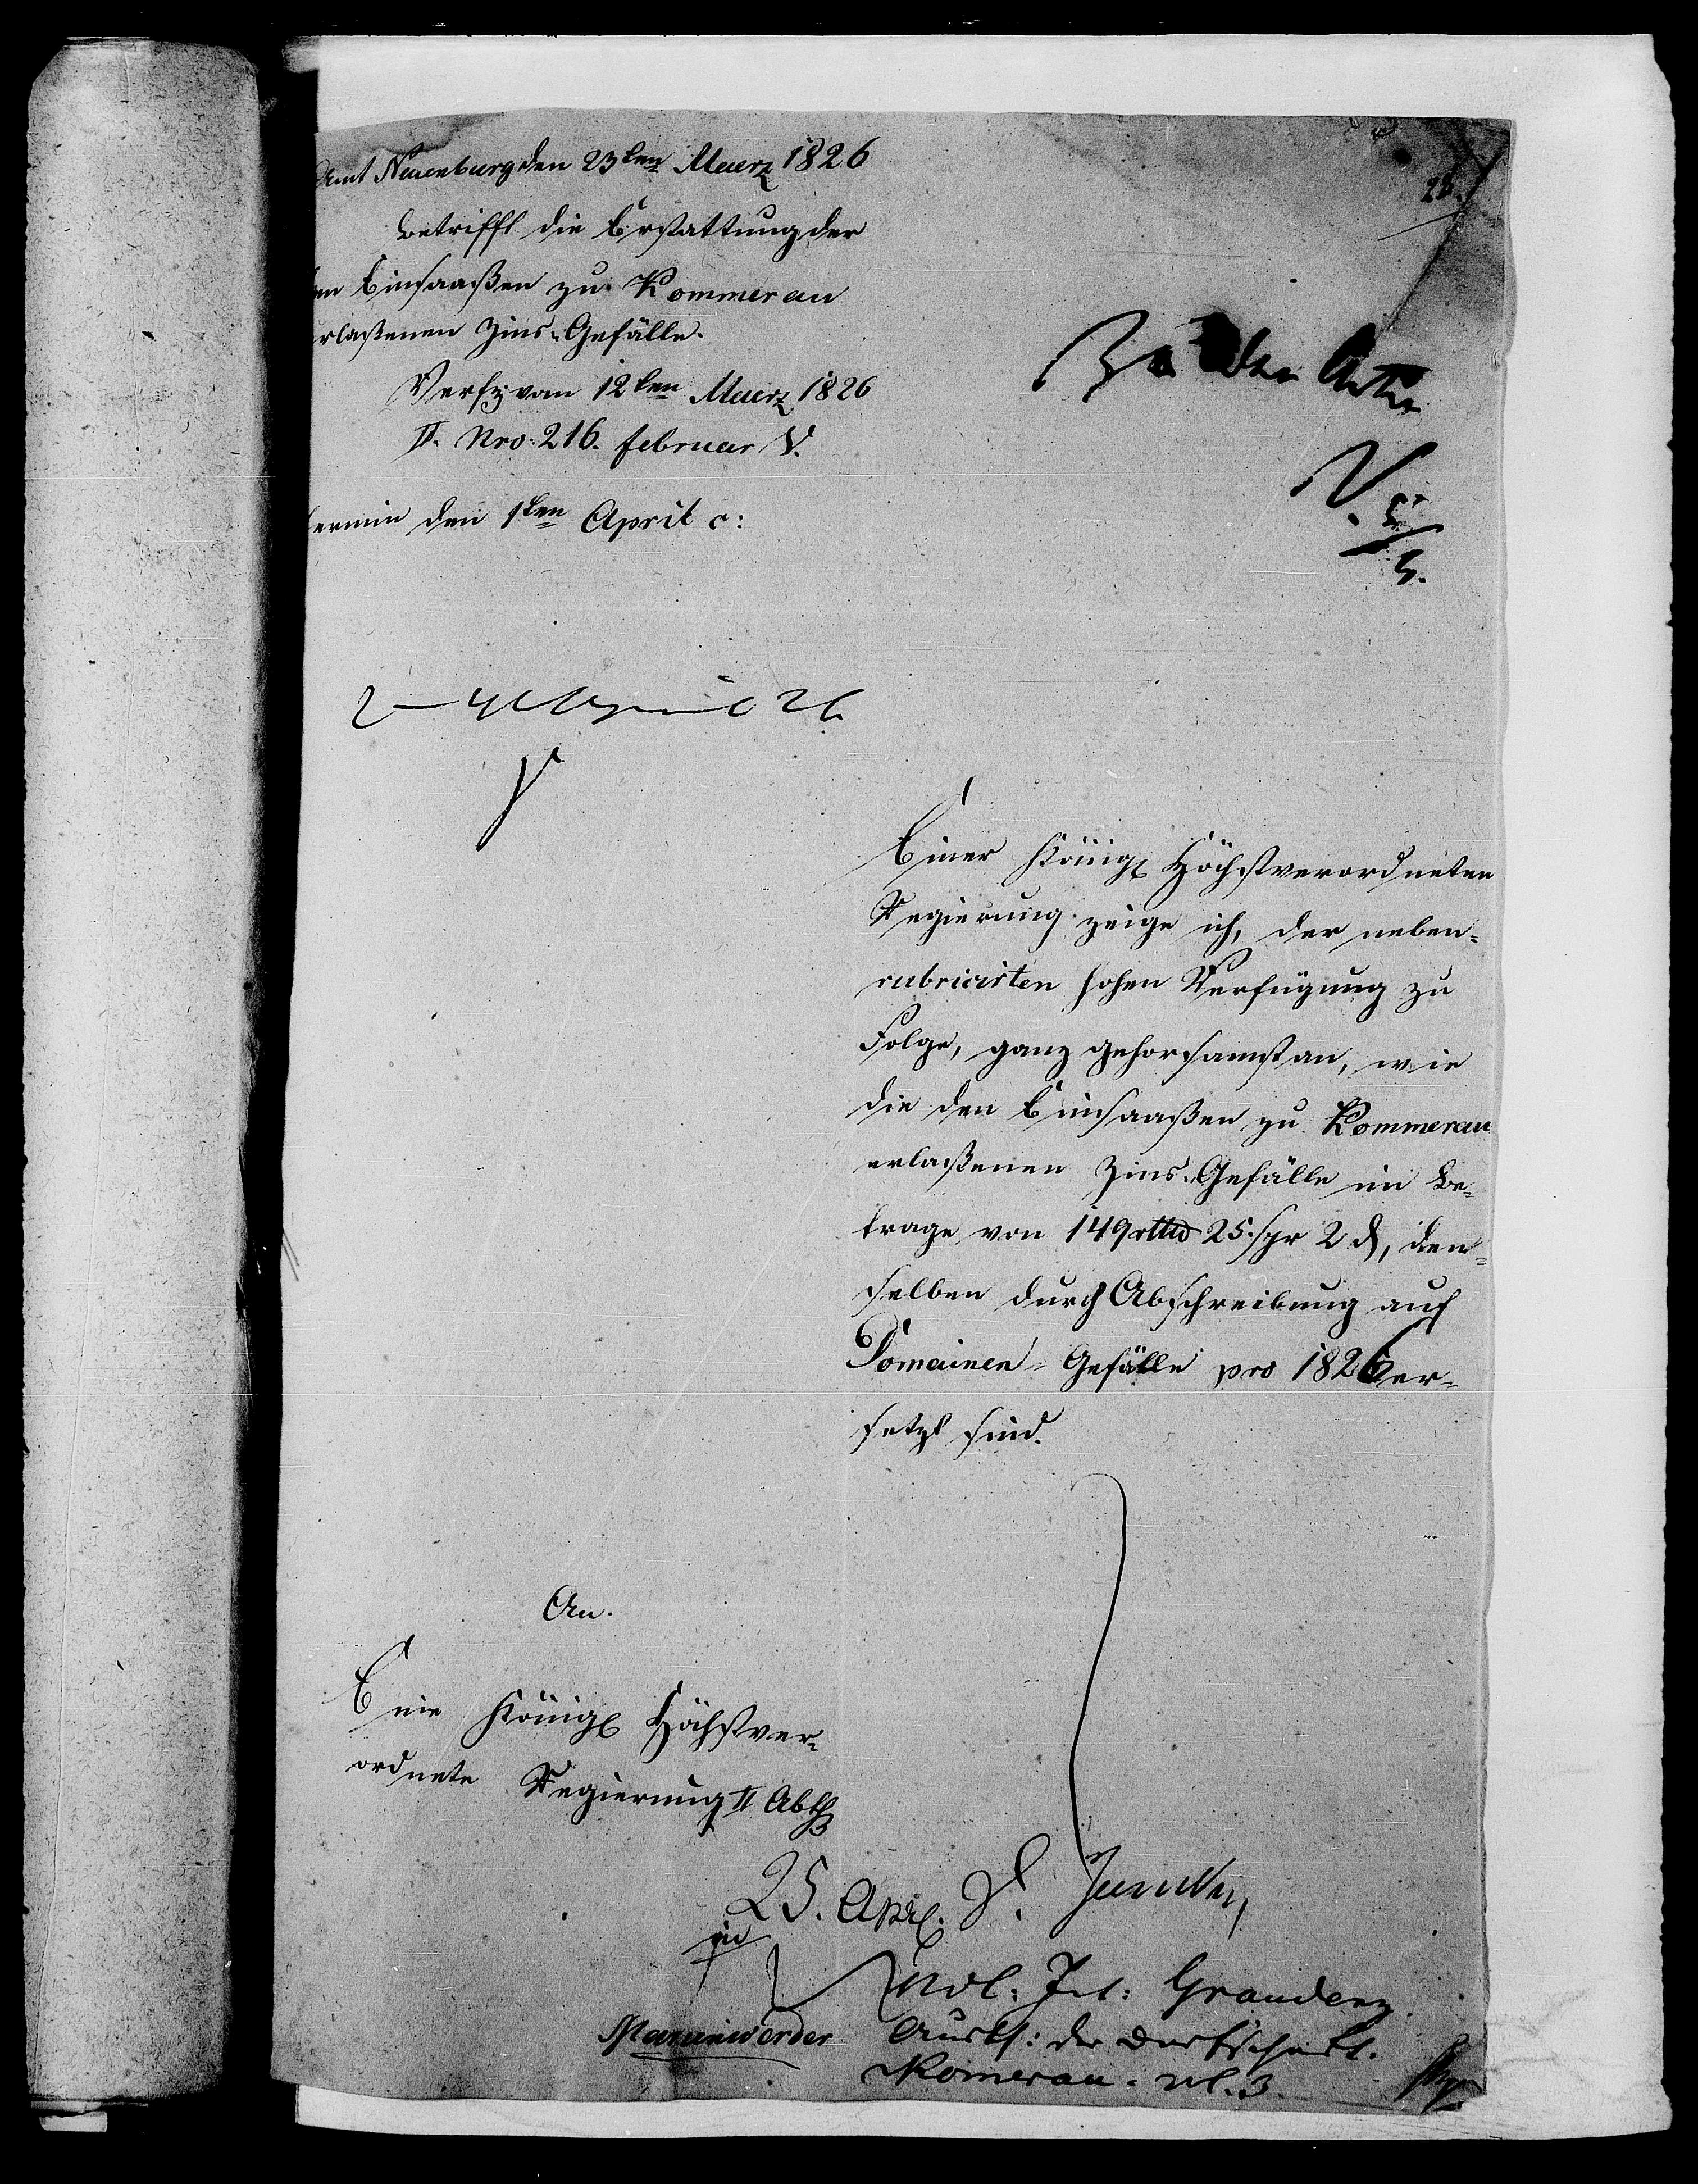 Amt Neuenburg den 23ten Maerz 1826
betrifft die Erstattung der
den Einsaaßen zu Kommerau
erlaßenen Zins-Gefälle.
Verfg vom 12ten Maerz 1826
II. Nro: 216. februar V.
Termin den 1ten April c:
28.
Zu den Acten
V. 5/4.
Einer Königl Höchstverordneten
Regierung zeige ich, der neben-
rubricirten hohen Verfügung zu
Folge, ganz gehorsamst an, wie
die den Einsaaßen zu Kommerau
erlaßenen Zins-Gefälle im Be-
trage von 149 rthlr 25 sgr 2 d, den-
selben durch Abschreibung auf
Domainen-Gefälle pro 1826 er-
setzt sind.
An
Eine Königl Höchstver-
ordnete Regierung II Abth
in
Marienwerder
25. Apr.
Int: Graudenz
der Dorfschaft
Komerau. vl. 3